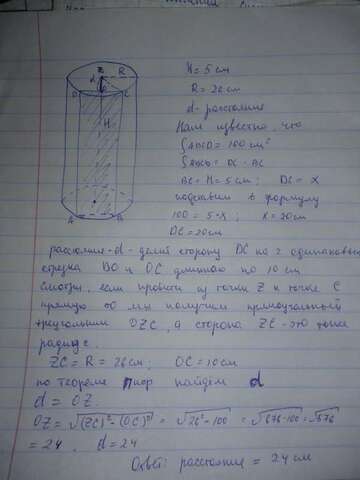 Z
R
d
D
C
H
A
B
H = 5 cm
R = 26 cm
d - расстояние
Нам известно, что
SABCD = 100 cm²
SABCD = DC · BC
BC = H = 5 cm; DC = X
подставим в формулу
100 = 5·X; X = 20cm
DC = 20cm
расстояние - d - делит сторону DC на 2 одинаковых
отрезка DO и OC длиною по 10 cm
Смотри, если провести из точки Z к точке C
прямую то мы получим прямоугольный
треугольник OZC, а сторона ZC - это тоже
радиус.
ZC = R = 26cm; OC = 10cm
по теореме пиф найдём d
d = OZ.
OZ = √(ZC)² - (OC)² = √26² - 100 = √676-100 = √576
= 24. d = 24
Ответ: расстояние = 24 cm